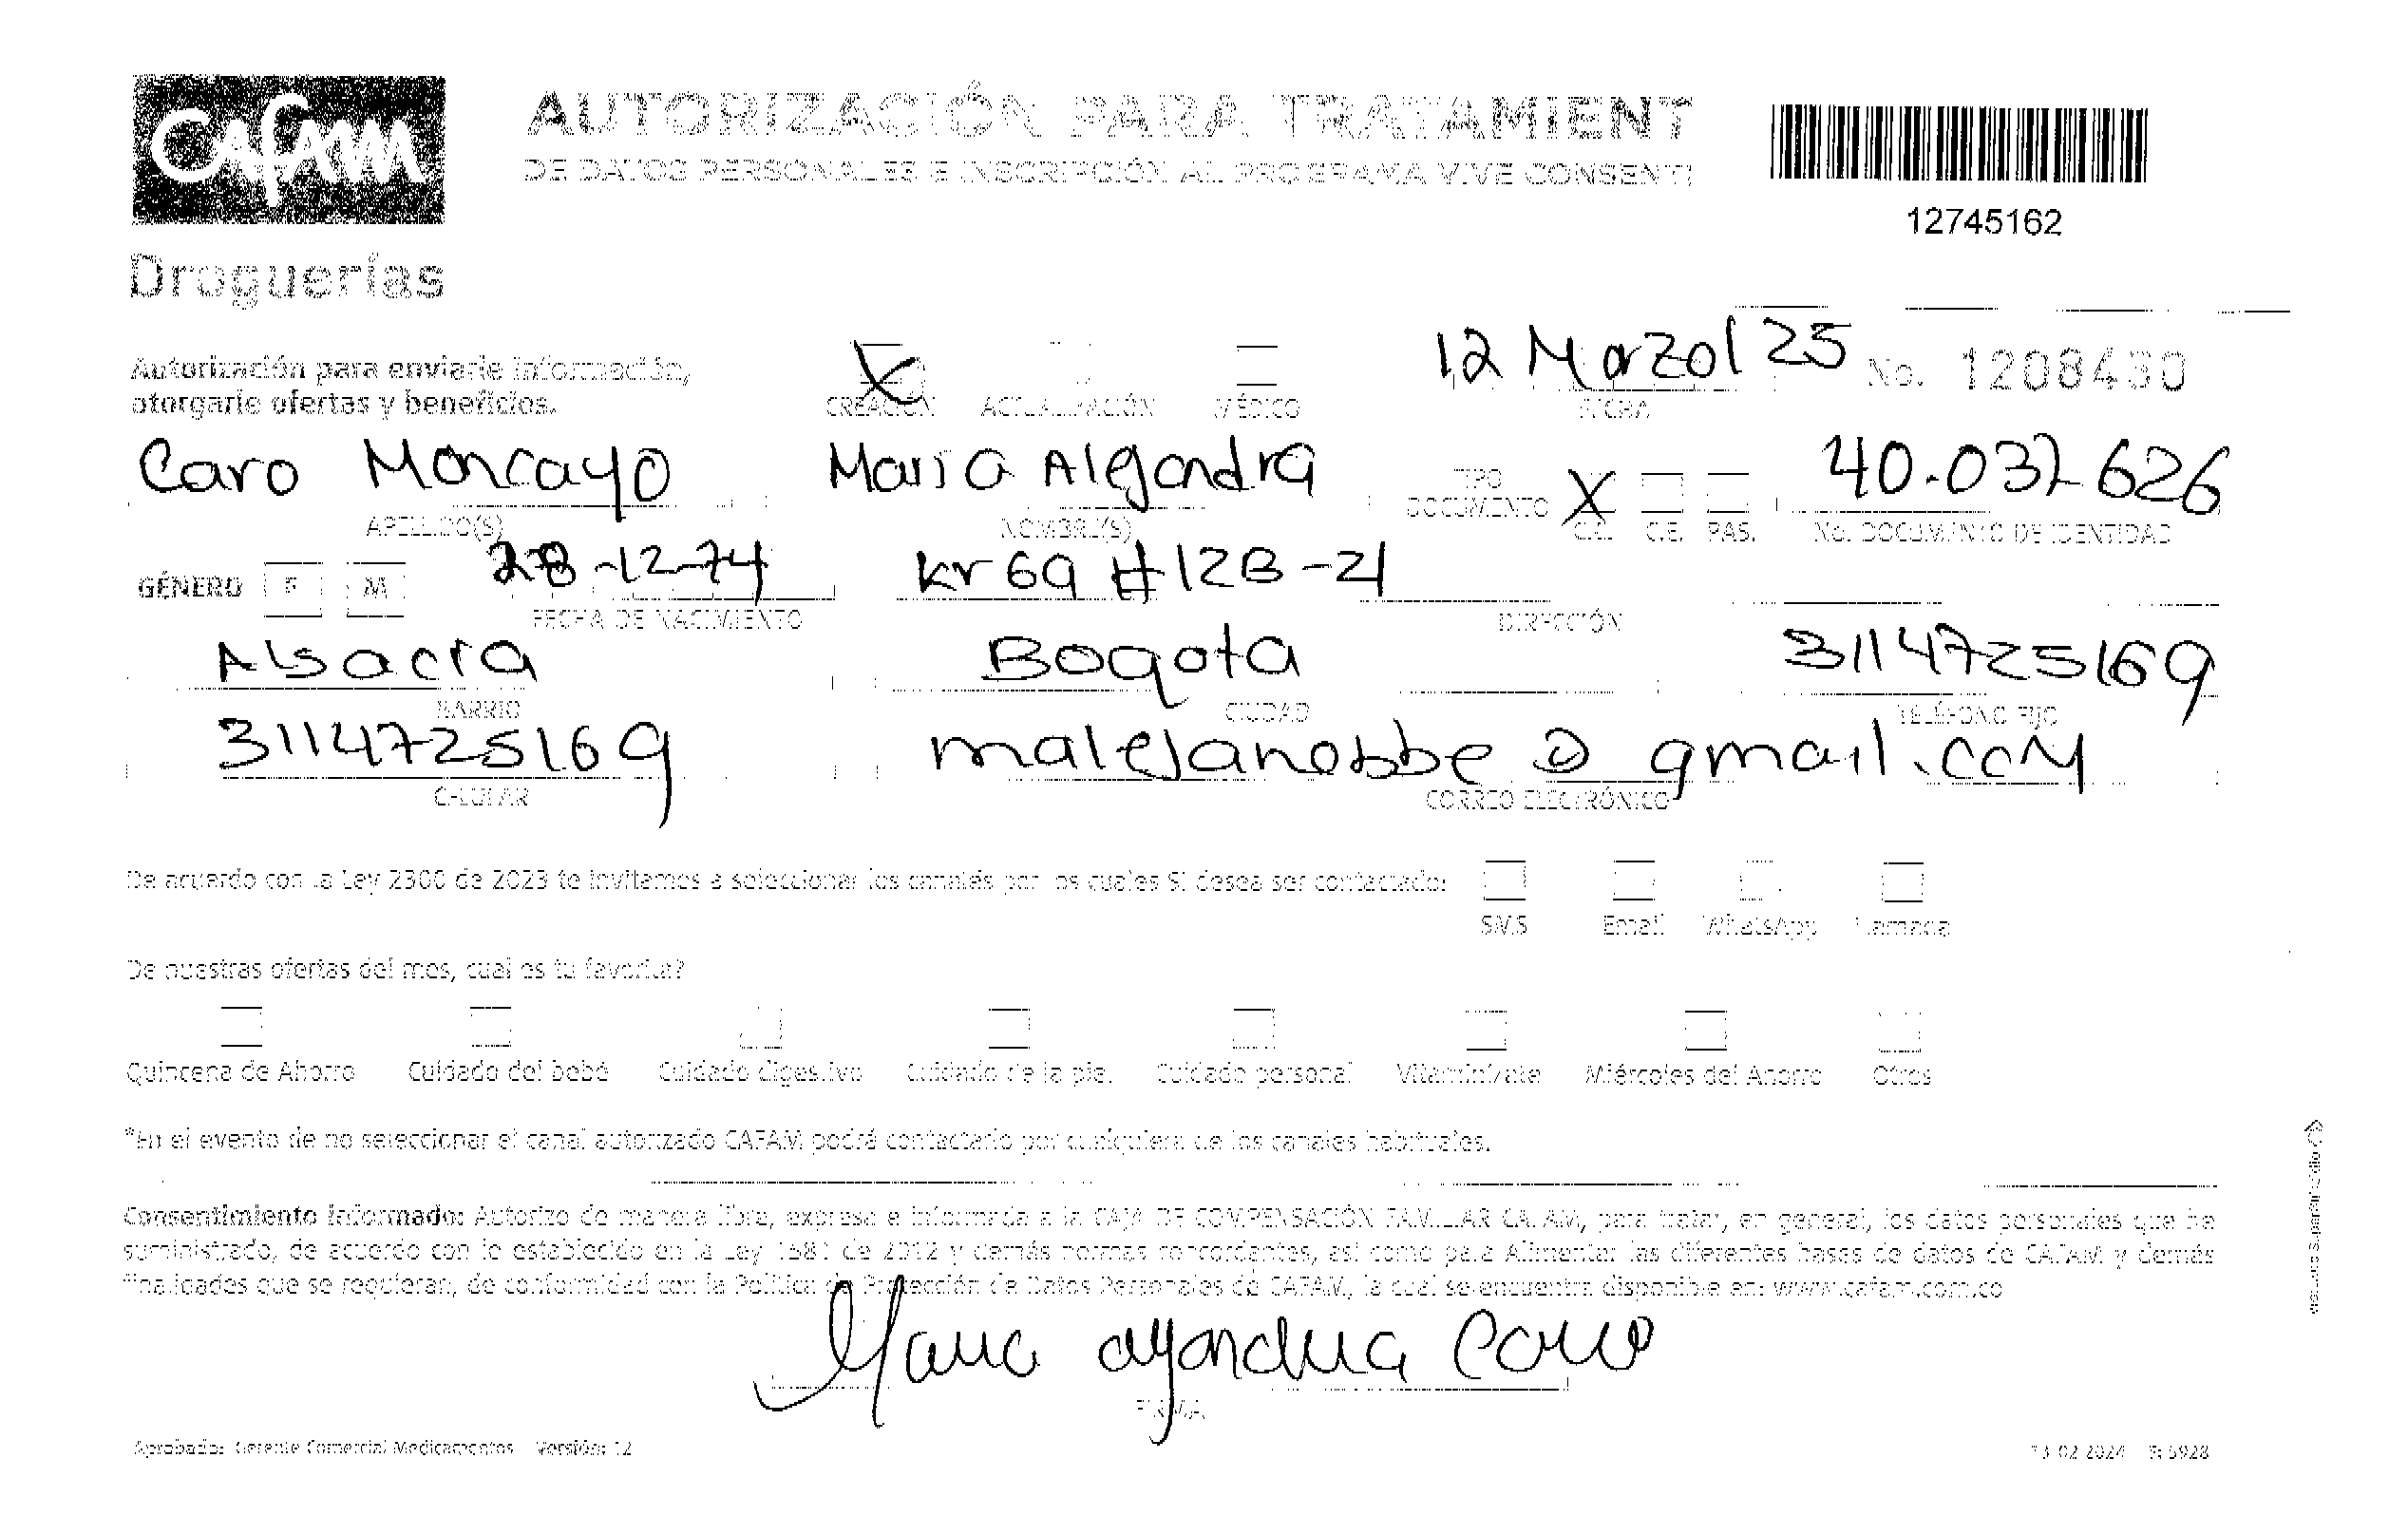 Cafam
AUTORIZACIÓN PARA TRATAMIENT
DE DATOS PERSONALES E INSCRIPCIÓN AL PROGRAMA VIVE CONSENTI
12745162
Droguerías
Autorización para enviarle información,
otorgarle ofertas y beneficios.
X
CREACIÓN ACTUALIZACIÓN MÉDICO
12 Marzo 25
FECHA
No. 1208430
Caro Moncayo Maria Alejandra
TIPO DOCUMENTO X C.C. C.E. PAS.
40.032626
APELLIDO(S) NOMBRE(S) No. DOCUMENTO DE IDENTIDAD
GÉNERO F M 28-12-74 kr 69 #12B-21
FECHA DE NACIMIENTO DIRECCIÓN
Alsacia Bogota 3114725169
BARRIO CIUDAD TELÉFONO FIJO
3114725169 malejanobbe@gmail.com
CELULAR CORREO ELECTRÓNICO
De acuerdo con la Ley 2300 de 2023 te invitamos a seleccionar los canales por los cuales SI desea ser contactado:
SMS Email WhatsApp Llamada
De nuestras ofertas del mes, cual es tu favorita?
Quincena de Ahorro Cuidado del bebé Cuidado digestivo Cuidado de la piel Cuidado personal Vitamínizate Miércoles del Ahorro Otros
*En el evento de no seleccionar el canal autorizado CAFAM podrá contactarlo por cualquiera de los canales habituales.
Consentimiento informado: Autorizo de manera libre, expresa e informada a la CAJA DE COMPENSACIÓN FAMILIAR CAFAM, para tratar, en general, los datos personales que he
suministrado, de acuerdo con lo establecido en la Ley 1581 de 2012 y demás normas concordantes, así como para Alimentar las diferentes bases de datos de CAFAM y demás
finalidades que se requieran, de conformidad con la Política de Protección de Datos Personales de CAFAM, la cual se encuentra disponible en: www.cafam.com.co
Maria Alejandra Caro
FIRMA
Aprobado: Gerente Comercial Medicamentos Versión: 12
13-02-2024